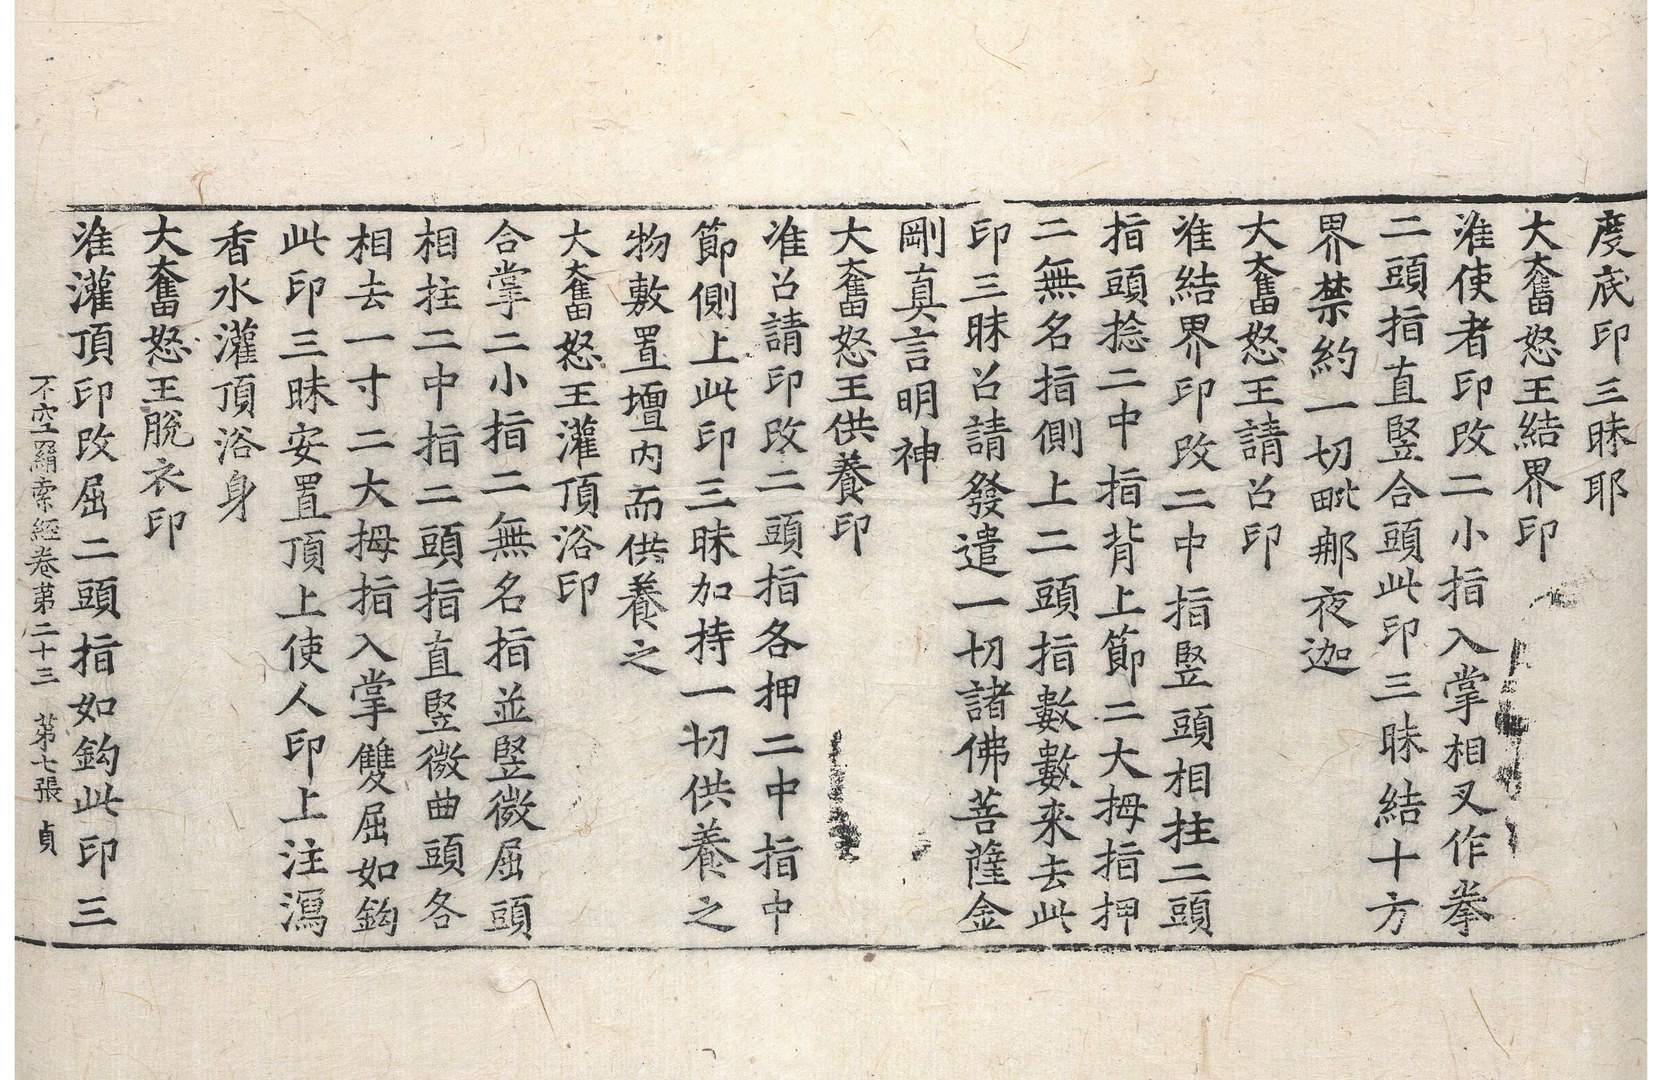 度底印三昧耶
大奮怒王結界印
准使者印改二小指入掌相叉作拳
二頭指直竪合頭此印三昧結十方
界禁約一切毗那夜迦
大奮怒王請召印
准結界印改二中指竪頭相拄二頭
指頭捻二中指背上節二大拇指押
二無名指側上二頭指數數來去此
印三昧召請發遣一切諸佛菩薩金
剛真言明神
大奮怒王供養印
准召請印改二頭指各押二中指中
節側上此印三昧加持一切供養之
物敷置壇内而供養之
大奮怒王灌頂浴印
合掌二小指二無名指並竪微屈頭
相拄二中指二頭指直竪微曲頭各
相去一寸二大拇指入掌雙屈如鈎
此印三昧安置頂上使人印上注瀉
香水灌頂浴身
大奮怒王脫衣印
准灌頂印改屈二頭指如鈎此印三
不空羂索經卷第二十三　第七張　貞